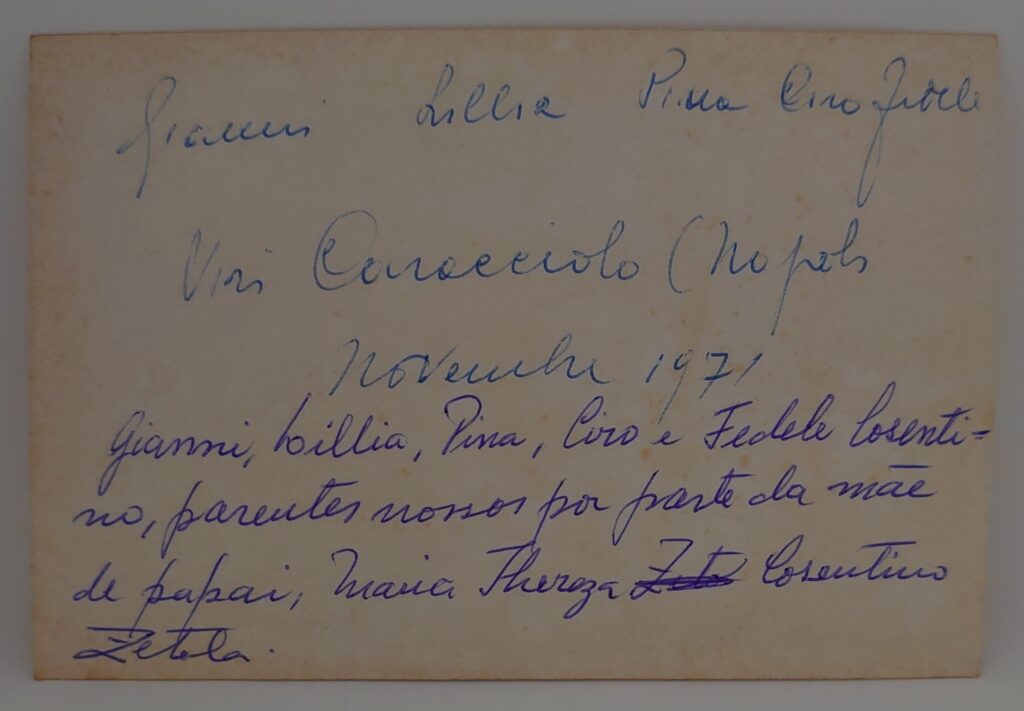 Gianni Lillia Pina Ciro Fedele
Caracciolo (Napoli
Novembre 1971
Gianni, Lillia, Pina, Ciro e Fedele Cosenti=
no, parentes nossos por parte da mãe
de papai, Maria Thereza Cosentino
Zetola.